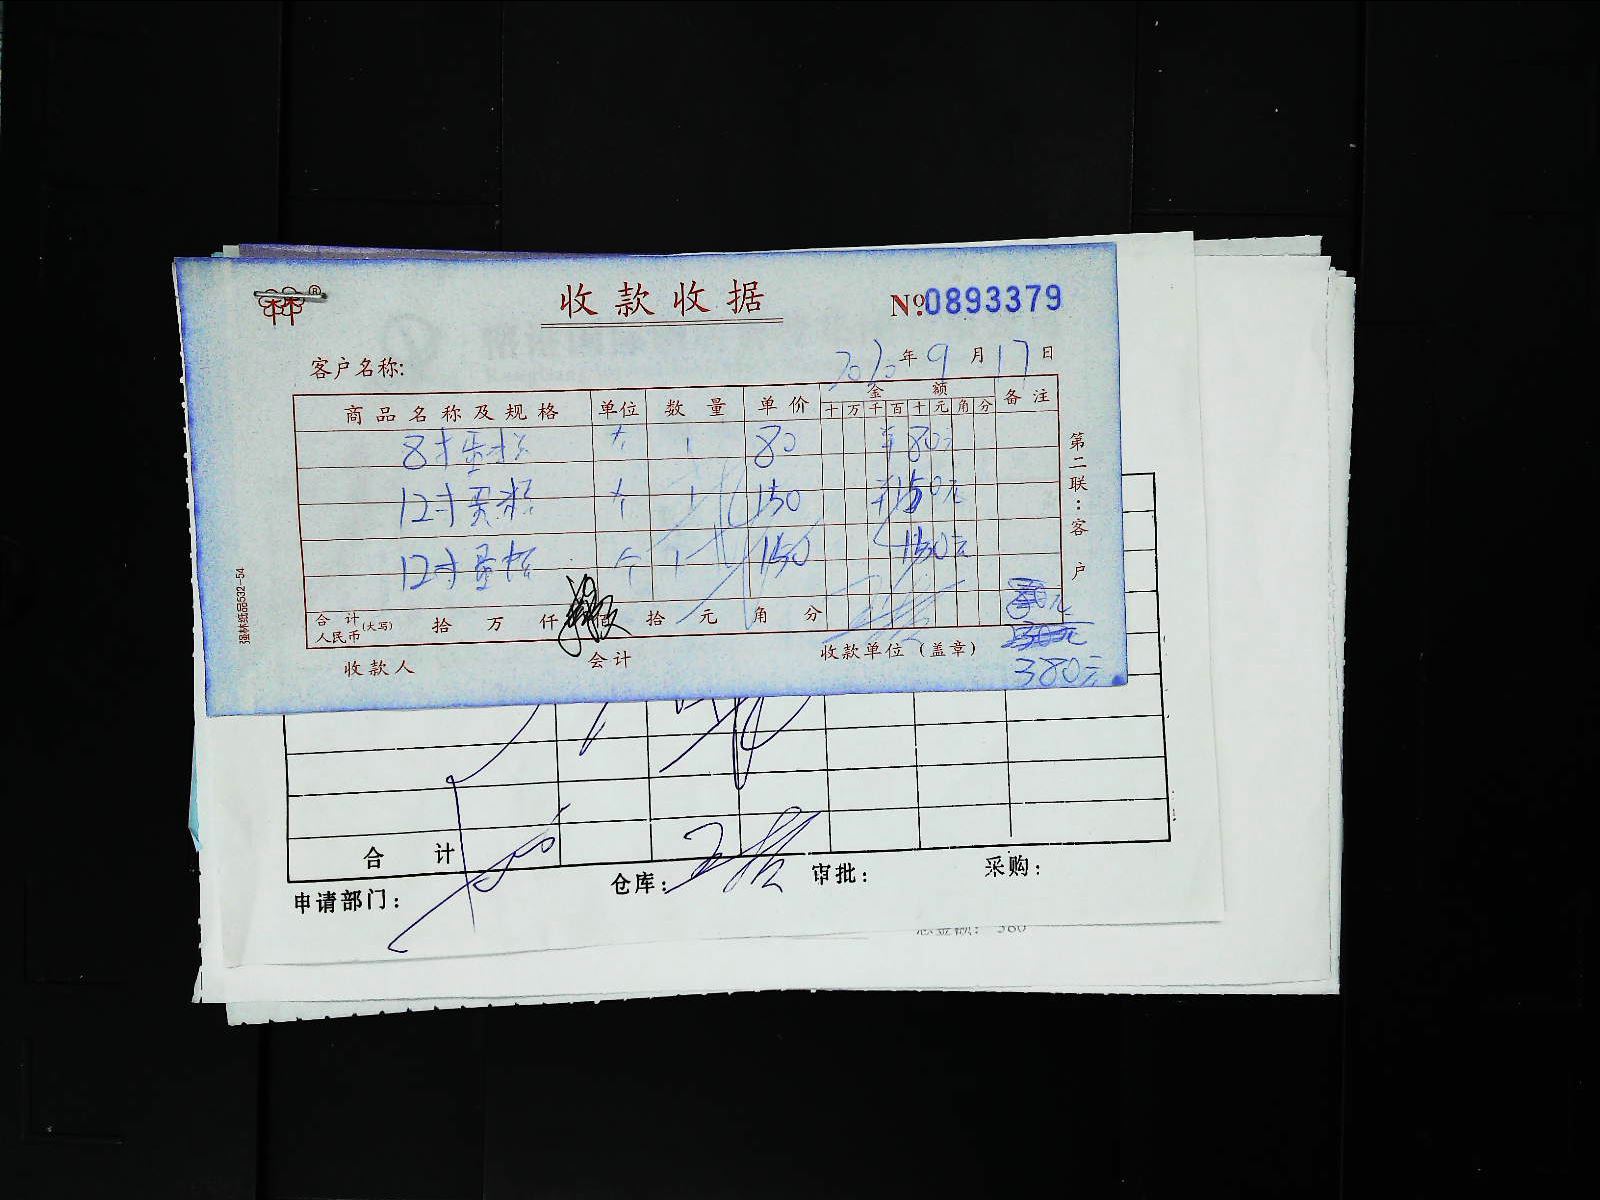 收款收据
№0893379
客户名称:
2020年9月17日
商品名称及规格 单位 数量 单价 金额 备注
十 万 千 百 十 元 角 分
8寸蛋糕 个 1 80 80元
12寸蛋糕 个 1 150 150元
12寸蛋糕 个 1 150 150元
合计人民币(大写) 拾 万 仟 佰 拾 元 角 分
380元
收款人 会计 收款单位(盖章)
第二联:客户
强林纸品532-54
合计
申请部门: 仓库: 审批: 采购:
总金额: 380